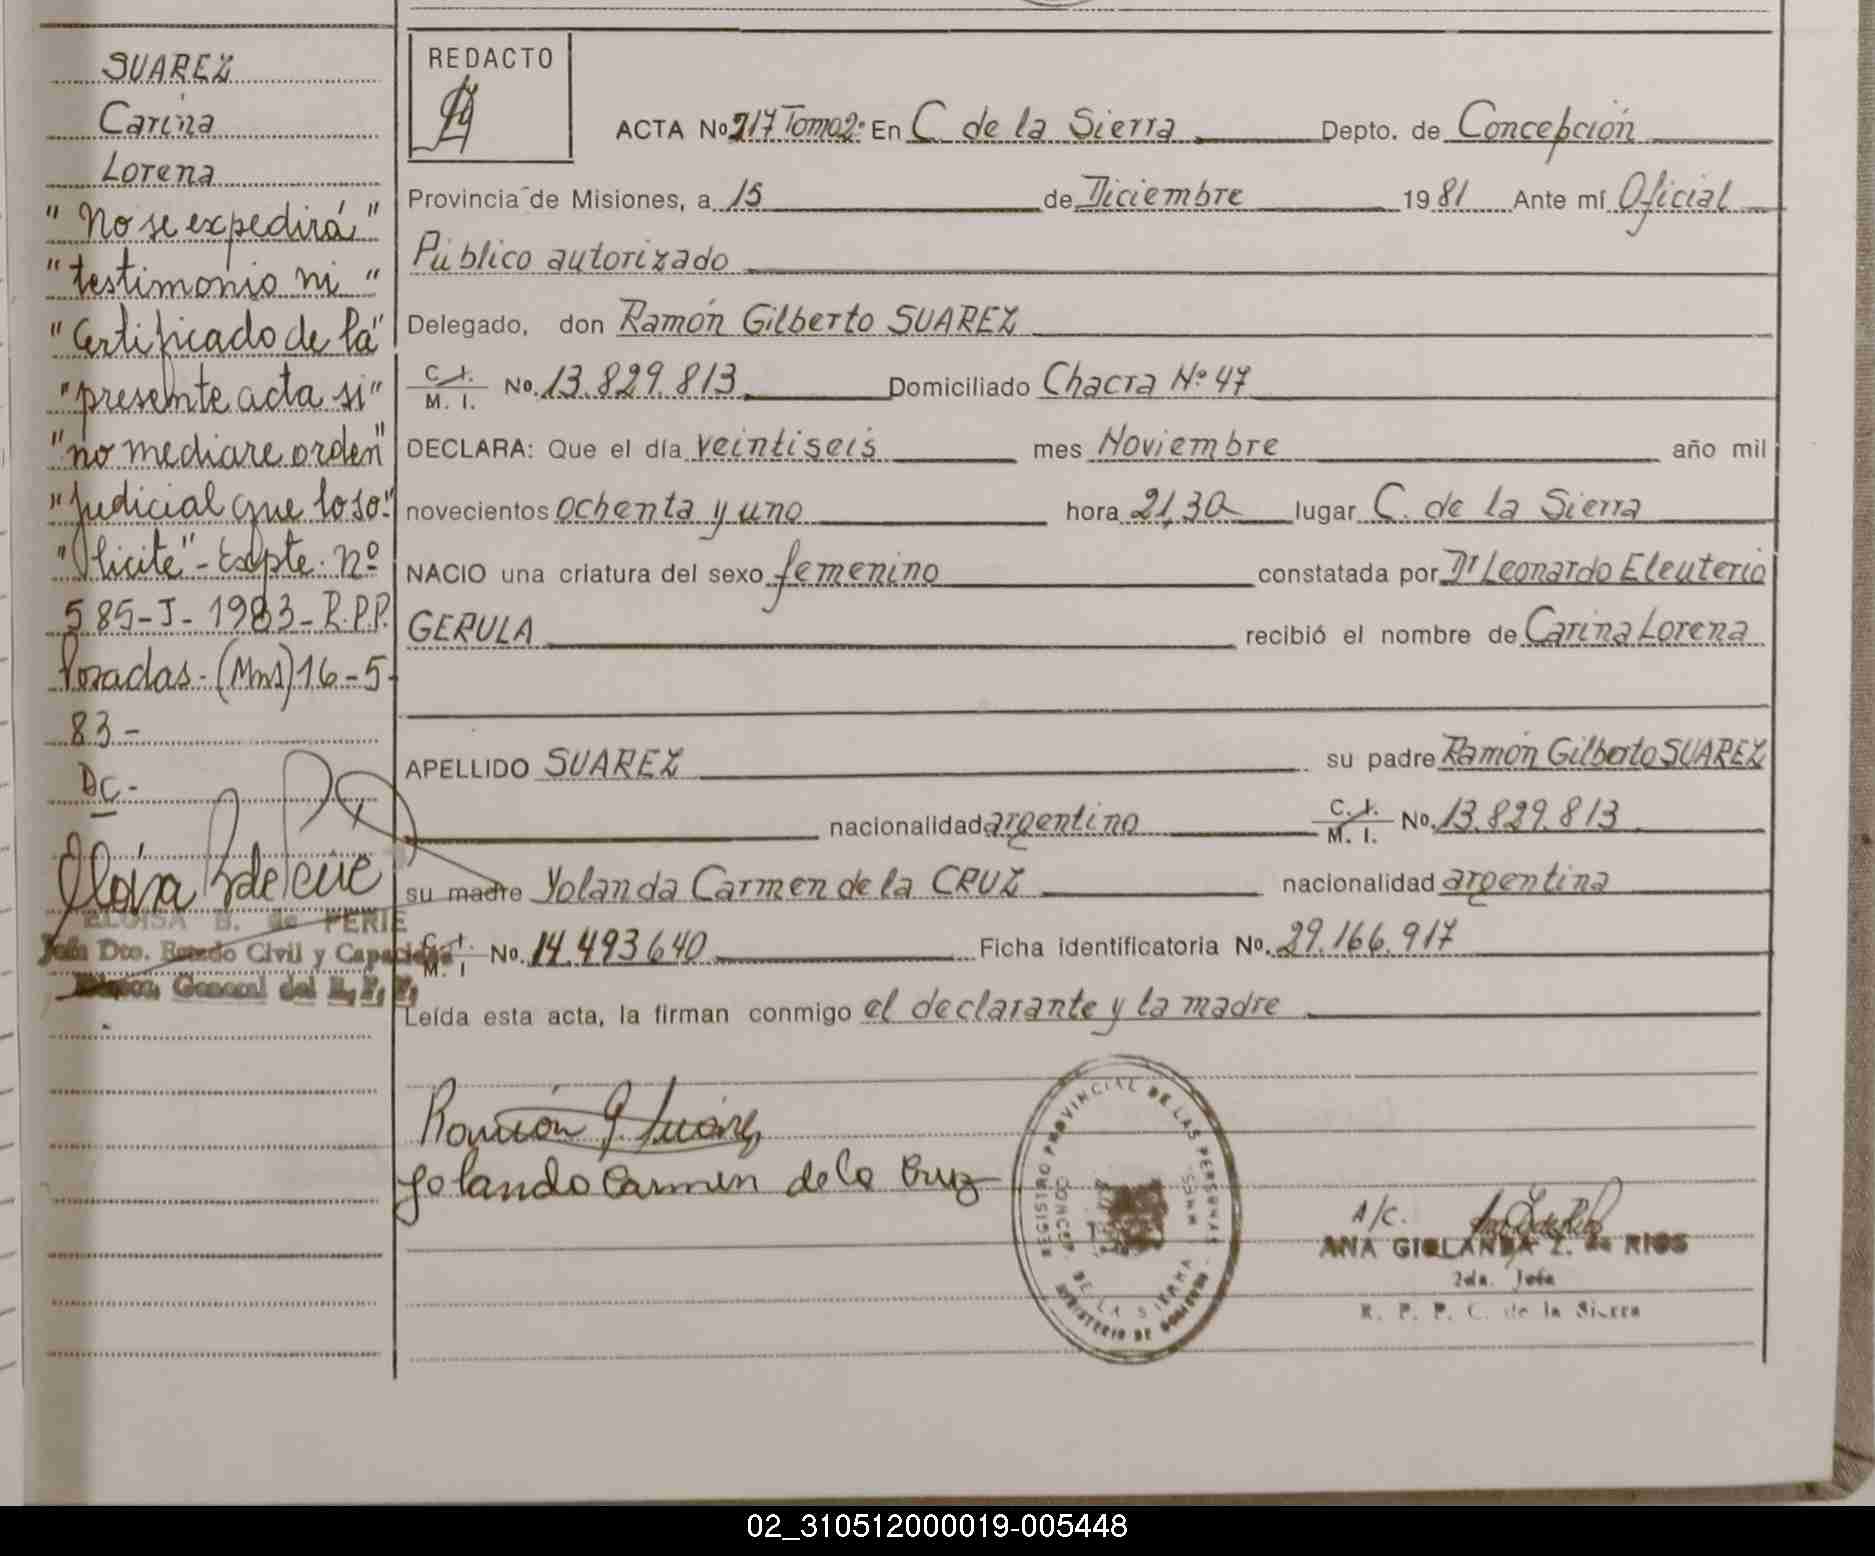 SUAREZ
Carina
Lorena
"No se expedirá"
"testimonio ni"
"Certificado de la"
"presente acta si"
"no mediare orden"
"Judicial que lo so-"
"licite" - Expte. nº
585-J-1983-R.P.P.
Posadas-(Mns)16-5-
83-
DC-
ELOISA B. de PERIE
Jefa Dto. Estado Civil y Capacidad
General del R. P. P.
REDACTO
ACTA No 217 Tomo2º En C. de la Sierra Depto. de Concepción
Provincia de Misiones, a 15 de Diciembre 1981 Ante mí Oficial
Público autorizado
Delegado, don Ramón Gilberto SUAREZ
C. I. M. I. No. 13.829.813 Domiciliado Chacra Nº 47
DECLARA: Que el día veintiseis mes Noviembre año mil
novecientos ochenta y uno hora 21,30 lugar C. de la Sierra
NACIO una criatura del sexo femenino constatada por Dr Leonardo Eleuterio
GERULA recibió el nombre de Carina Lorena
APELLIDO SUAREZ su padre Ramón Gilberto SUAREZ
nacionalidad argentino C. I. M. I. No. 13.829.813
su madre Yolanda Carmen de la CRUZ nacionalidad argentina
C. I. M. I No. 14.493.640 Ficha identificatoria No. 29.166.917
Leída esta acta, la firman conmigo el declarante y la madre
Ramón G. Suárez
Yolanda Carmen de la Cruz
REGISTRO PROVINCIAL DE LAS PERSONAS
DE LA SIERRA
MINISTERIO DE GOBIERNO
A/C.
ANA GIOLANDA Z. de RIOS
2da. Jefa
R. P. P. C. de la Sierra
02_310512000019-005448